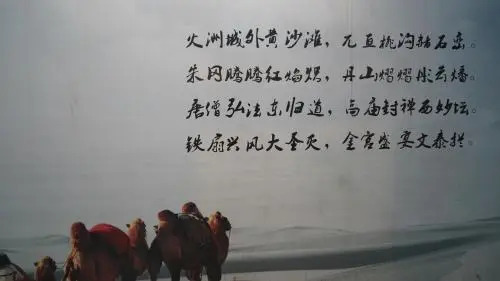 火洲城外黄沙滩，兀亘桃沟赭石峦。
朱冈腾腾红焰炽，丹山熠熠彤云燔。
唐僧弘法东归道，高庙封禅西妙坛。
铁扇兴风大圣灭，金宫盛宴文泰拦。